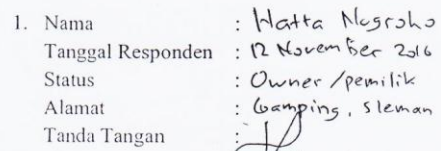 1. Nama : Hatta Nugroho
Tanggal Responden : 12 November 2016
Status : Owner / pemilik
Alamat : Gamping, Sleman
Tanda Tangan :